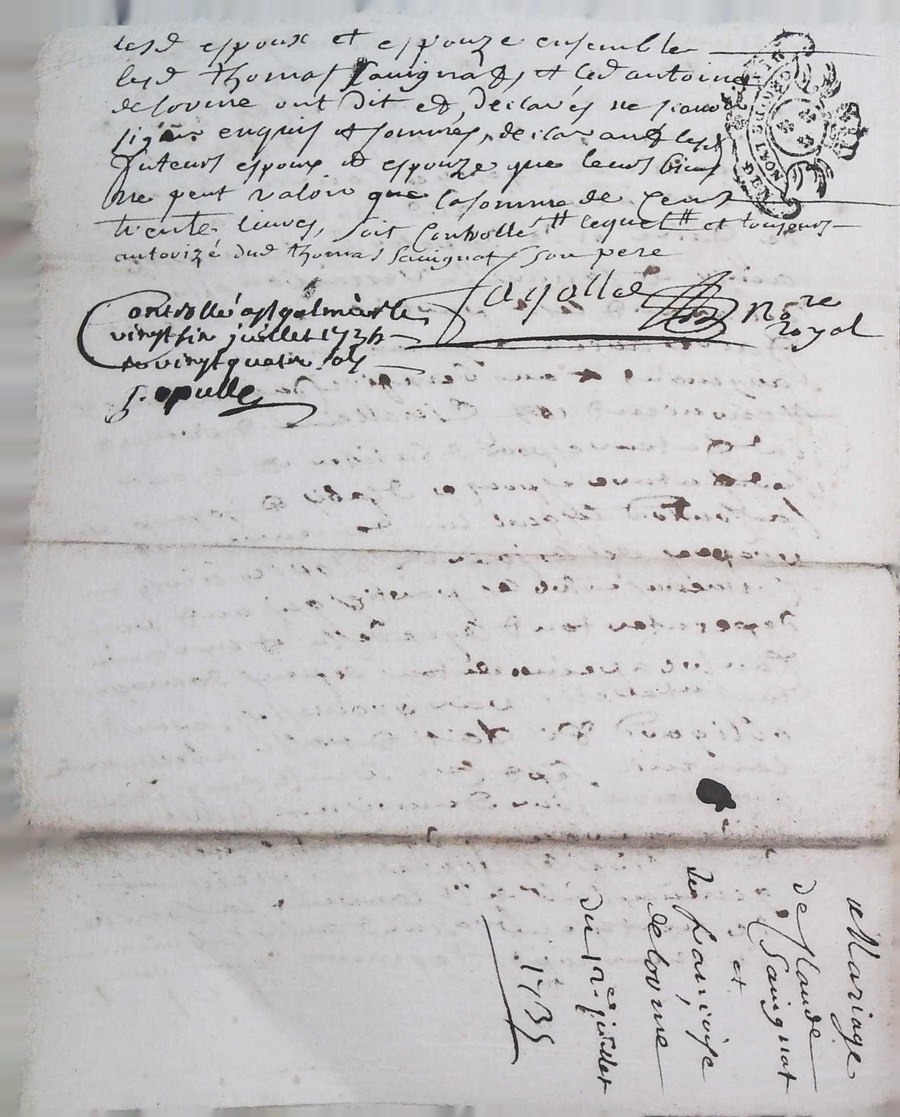 lesd espoux et espouze ensemble
lesd thomas Sauignat et led antoine
delorme ont dit et declarés ne sçauoir
signer enquis et sommés, declarant lesd
futeurs espoux et espouze que leurs biens
ne peut valoir que la somme de Cent
trente liures, soit Controllé # lequel # et tousiours
autorizé dud thomas Sauignat son pere
Fayolle No re
royal
Controllé a st galmier le
vingt six juillet 173
R vingt quatre sols
pupulle
Mariage
de Claude
Sauignat
et
de francoise
delorme
du 12e juillet
1735
GENER DE LYON